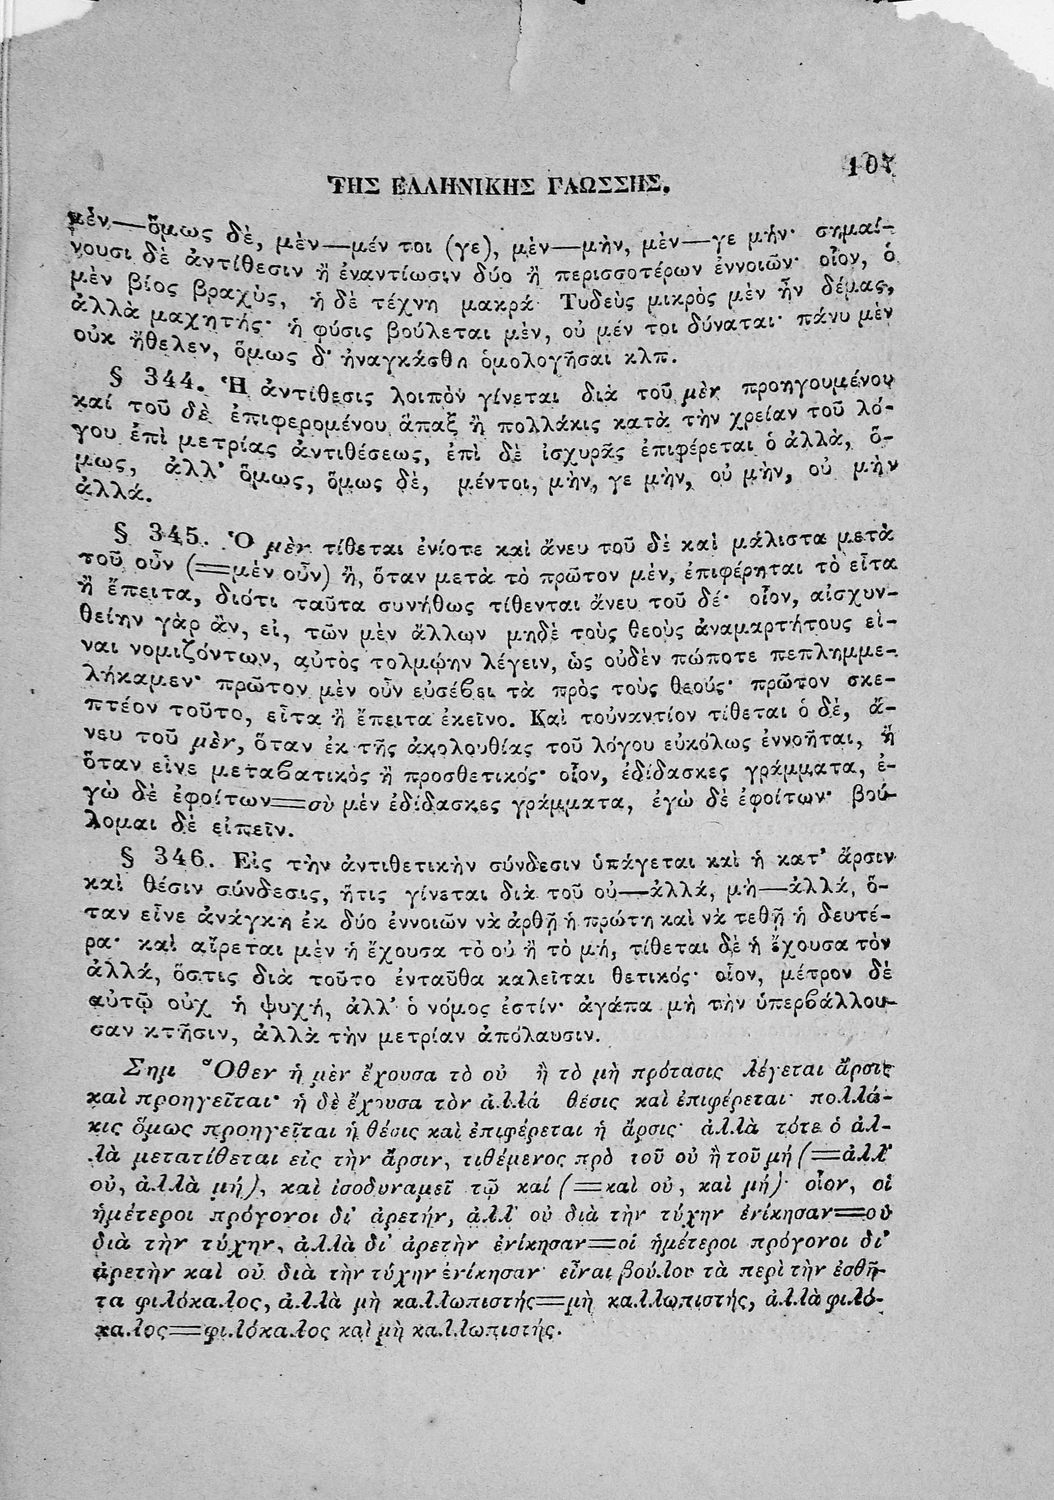 ΤΗΣ ΕΛΛΗΝΙΚΗΣ ΓΛΩΣΣΗΣ. 107
μὲν—ὅμως δὲ, μὲν—μέν τοι (γε), μὲν—μὴν, μὲν—γε μήν· σημαί-
νουσι δὲ ἀντίθεσιν ἢ ἐναντίωσιν δύο ἢ περισσοτέρων ἐννοιῶν· οἷον, ὁ
μὲν βίος βραχὺς, ἡ δὲ τέχνη μακρά· Τυδεὺς μικρὸς μὲν ἦν δέμας,
ἀλλὰ μαχητής· ἡ φύσις βούλεται μὲν, οὐ μέν τοι δύναται· πάνυ μὲν
οὐκ ἤθελεν, ὅμως δ' ἠναγκάσθη ὁμολογῆσαι κλπ.
§ 344. Ἡ ἀντίθεσις λοιπὸν γίνεται διὰ τοῦ μὲν προηγουμένου
καί τοῦ δὲ ἐπιφερομένου ἅπαξ ἢ πολλάκις κατὰ τὴν χρείαν τοῦ λό-
γου ἐπὶ μετρίας ἀντιθέσεως, ἐπὶ δὲ ἰσχυρᾶς ἐπιφέρεται ὁ ἀλλὰ, ὅ-
μως, ἀλλ' ὅμως, ὅμως δὲ, μέντοι, μὴν, γε μὴν, οὐ μὴν, οὐ μὴν
ἀλλά.
§ 345. Ὁ μὲν τίθεται ἐνίοτε καὶ ἄνευ τοῦ δὲ καὶ μάλιστα μετὰ
τοῦ οὖν (=μὲν οὖν) ἢ, ὅταν μετὰ τὸ πρῶτον μὲν, ἐπιφέρηται τὸ εἶτα
ἢ ἔπειτα, διότι ταῦτα συνήθως τίθενται ἄνευ τοῦ δέ· οἷον, αἰσχυν-
θείην γὰρ ἂν, εἰ, τῶν μὲν ἄλλων μηδὲ τοὺς θεοὺς ἀναμαρτήτους εἶ-
ναι νομιζόντων, αὐτὸς τολμῴην λέγειν, ὡς οὐδὲν πώποτε πεπλημμε-
λήκαμεν· πρῶτον μὲν οὖν εὐσέβει τὰ πρὸς τοὺς θεούς· πρῶτον σκε-
πτέον τοῦτο, εἶτα ἢ ἔπειτα ἐκεῖνο. Καὶ τοὐναντίον τίθεται ὁ δὲ, ἄ-
νευ τοῦ μὲν, ὅταν ἐκ τῆς ἀκολουθίας τοῦ λόγου εὐκόλως ἐννοῆται, ἢ
ὅταν εἶνε μεταβατικὸς ἢ προσθετικός· οἷον, ἐδίδασκες γράμματα, ἐ-
γὼ δὲ ἐφοίτων=σὺ μὲν ἐδίδασκες γράμματα, ἐγὼ δὲ ἐφοίτων· βού-
λομαι δὲ εἰπεῖν.
§ 346. Εἰς τὴν ἀντιθετικὴν σύνδεσιν ὑπάγεται καὶ ἡ κατ' ἄρσιν
καὶ θέσιν σύνδεσις, ἥτις γίνεται διὰ τοῦ οὐ—ἀλλά, μὴ—ἀλλά, ὅ-
ταν εἶνε ἀνάγκη ἐκ δύο ἐννοιῶν νὰ ἀρθῇ ἡ πρώτη καὶ νὰ τεθῇ ἡ δευτέ-
ρα· καὶ αἴρεται μὲν ἡ ἔχουσα τὸ οὐ ἢ τὸ μή, τίθεται δὲ ἡ ἔχουσα τὸν
ἀλλά, ὅστις διὰ τοῦτο ἐνταῦθα καλεῖται θετικός· οἷον, μέτρον δὲ
αὐτῷ οὐχ ἡ ψυχή, ἀλλ' ὁ νόμος ἐστίν· ἀγάπα μὴ τὴν ὑπερβάλλου-
σαν κτῆσιν, ἀλλὰ τὴν μετρίαν ἀπόλαυσιν.
Σημ Ὅθεν ἡ μὲν ἔχουσα τὸ οὐ ἢ τὸ μὴ πρότασις λέγεται ἄρσις
καὶ προηγεῖται· ἡ δὲ ἔχουσα τὸν ἀλλά θέσις καὶ ἐπιφέρεται· πολλά-
κις ὅμως προηγεῖται ἡ θέσις καὶ ἐπιφέρεται ἡ ἄρσις· ἀλλὰ τότε ὁ ἀλ-
λὰ μετατίθεται εἰς τὴν ἄρσιν, τιθέμενος πρὸ τοῦ οὐ ἢ τοῦ μή (=ἀλλ'
οὐ, ἀλλὰ μή), καὶ ἰσοδυναμεῖ τῷ καί (=καὶ οὐ, καὶ μή)· οἷον, οἱ
ἡμέτεροι πρόγονοι δι' ἀρετήν, ἀλλ' οὐ διὰ τὴν τύχην ἐνίκησαν=οὐ
διὰ τὴν τύχην, ἀλλὰ δι' ἀρετὴν ἐνίκησαν=οἱ ἡμέτεροι πρόγονοι δι'
ἀρετὴν καὶ οὐ διὰ τὴν τύχην ἐνίκησαν· εἶναι βούλου τὰ περὶ τὴν ἐσθῆ-
τα φιλόκαλος, ἀλλὰ μὴ καλλωπιστής=μὴ καλλωπιστής, ἀλλὰ φιλό-
καλος=φιλόκαλος καὶ μὴ καλλωπιστής.